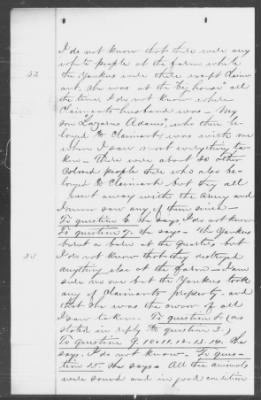 I do not know that there were any
white people at the farm while
52 the Yankees were there except Claim-
ant, she was at the "big house" all
the time, I do not know where
Claimants husband was - My
son Lazarus Adams, who then be-
longed to Claimant was with me
when I saw most everything ta-
ken - There were about 30 other
colored people there who also be-
longed to Claimant but they all
went away with the Army and
I never saw any of them since -
To question 6. she says, I do not know
To question 7. she says - The Yankees
burnt a barn at the quarters but
53 I do not know that they destroyed
anything else at the farm - I am
sure no one but the Yankees took
any of Claimants property and
that she was the owner of all
I saw taken - To question 8 (as
stated in reply to question 3.)
To question 9. 10. 11. 12. 13. 14. She
says. I do not know - To ques-
tion 15. she says - All the animals
were sound and in good condition